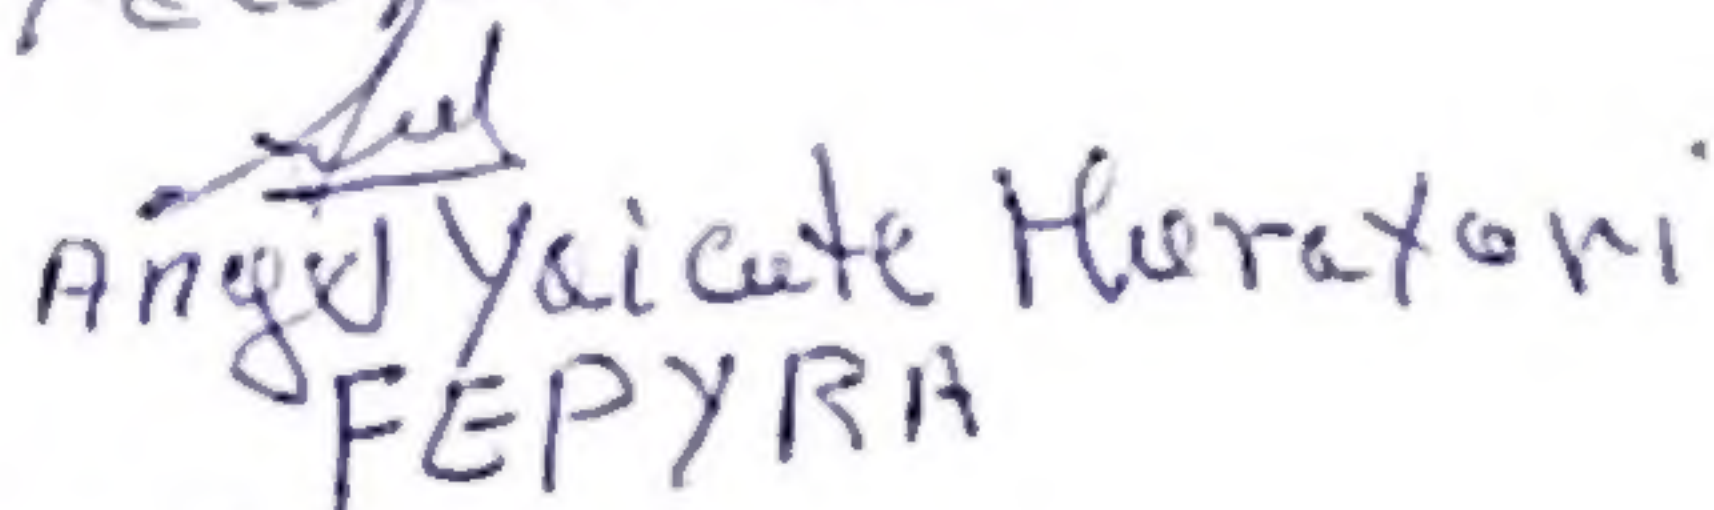 Angel Yaicate Murayari
FEPYRA